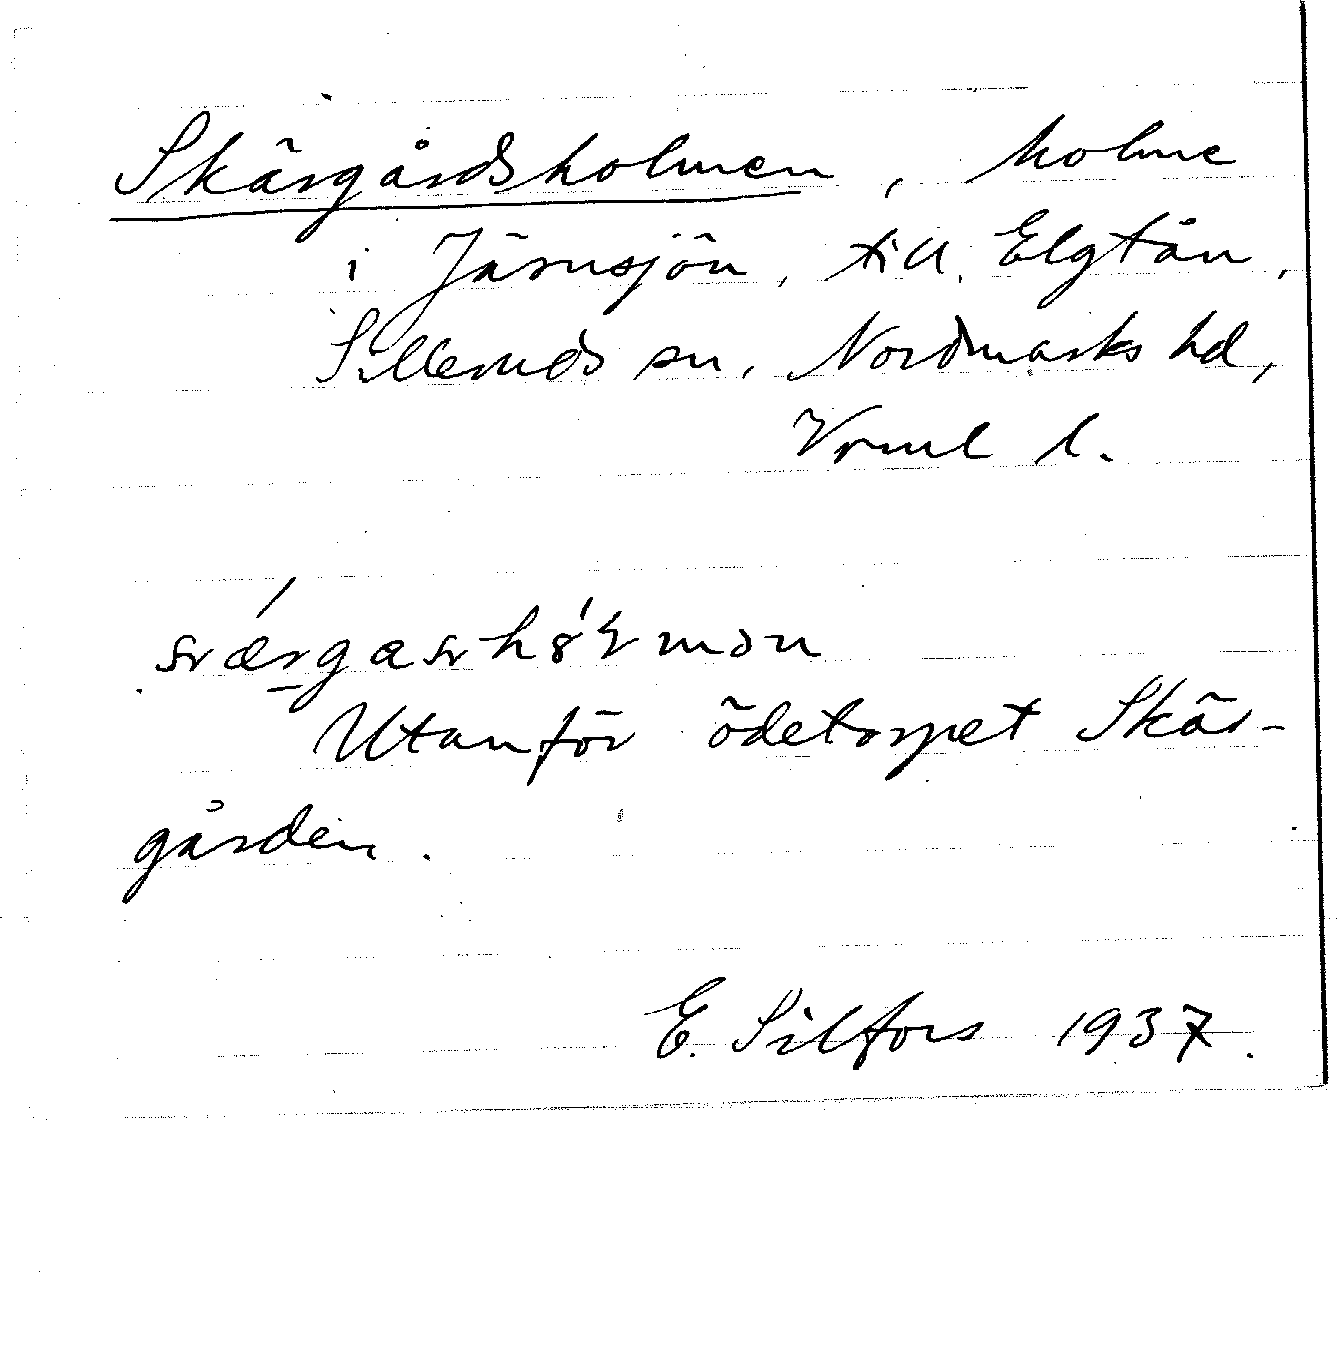 Skärgårdsholmen, holme
i Järnsjön, till Elgtån,
Silleruds sn, Nordmarks hd,
Vrml l.
Utanför ödetorpet Skär-
gården.
E. Silfors 1937.